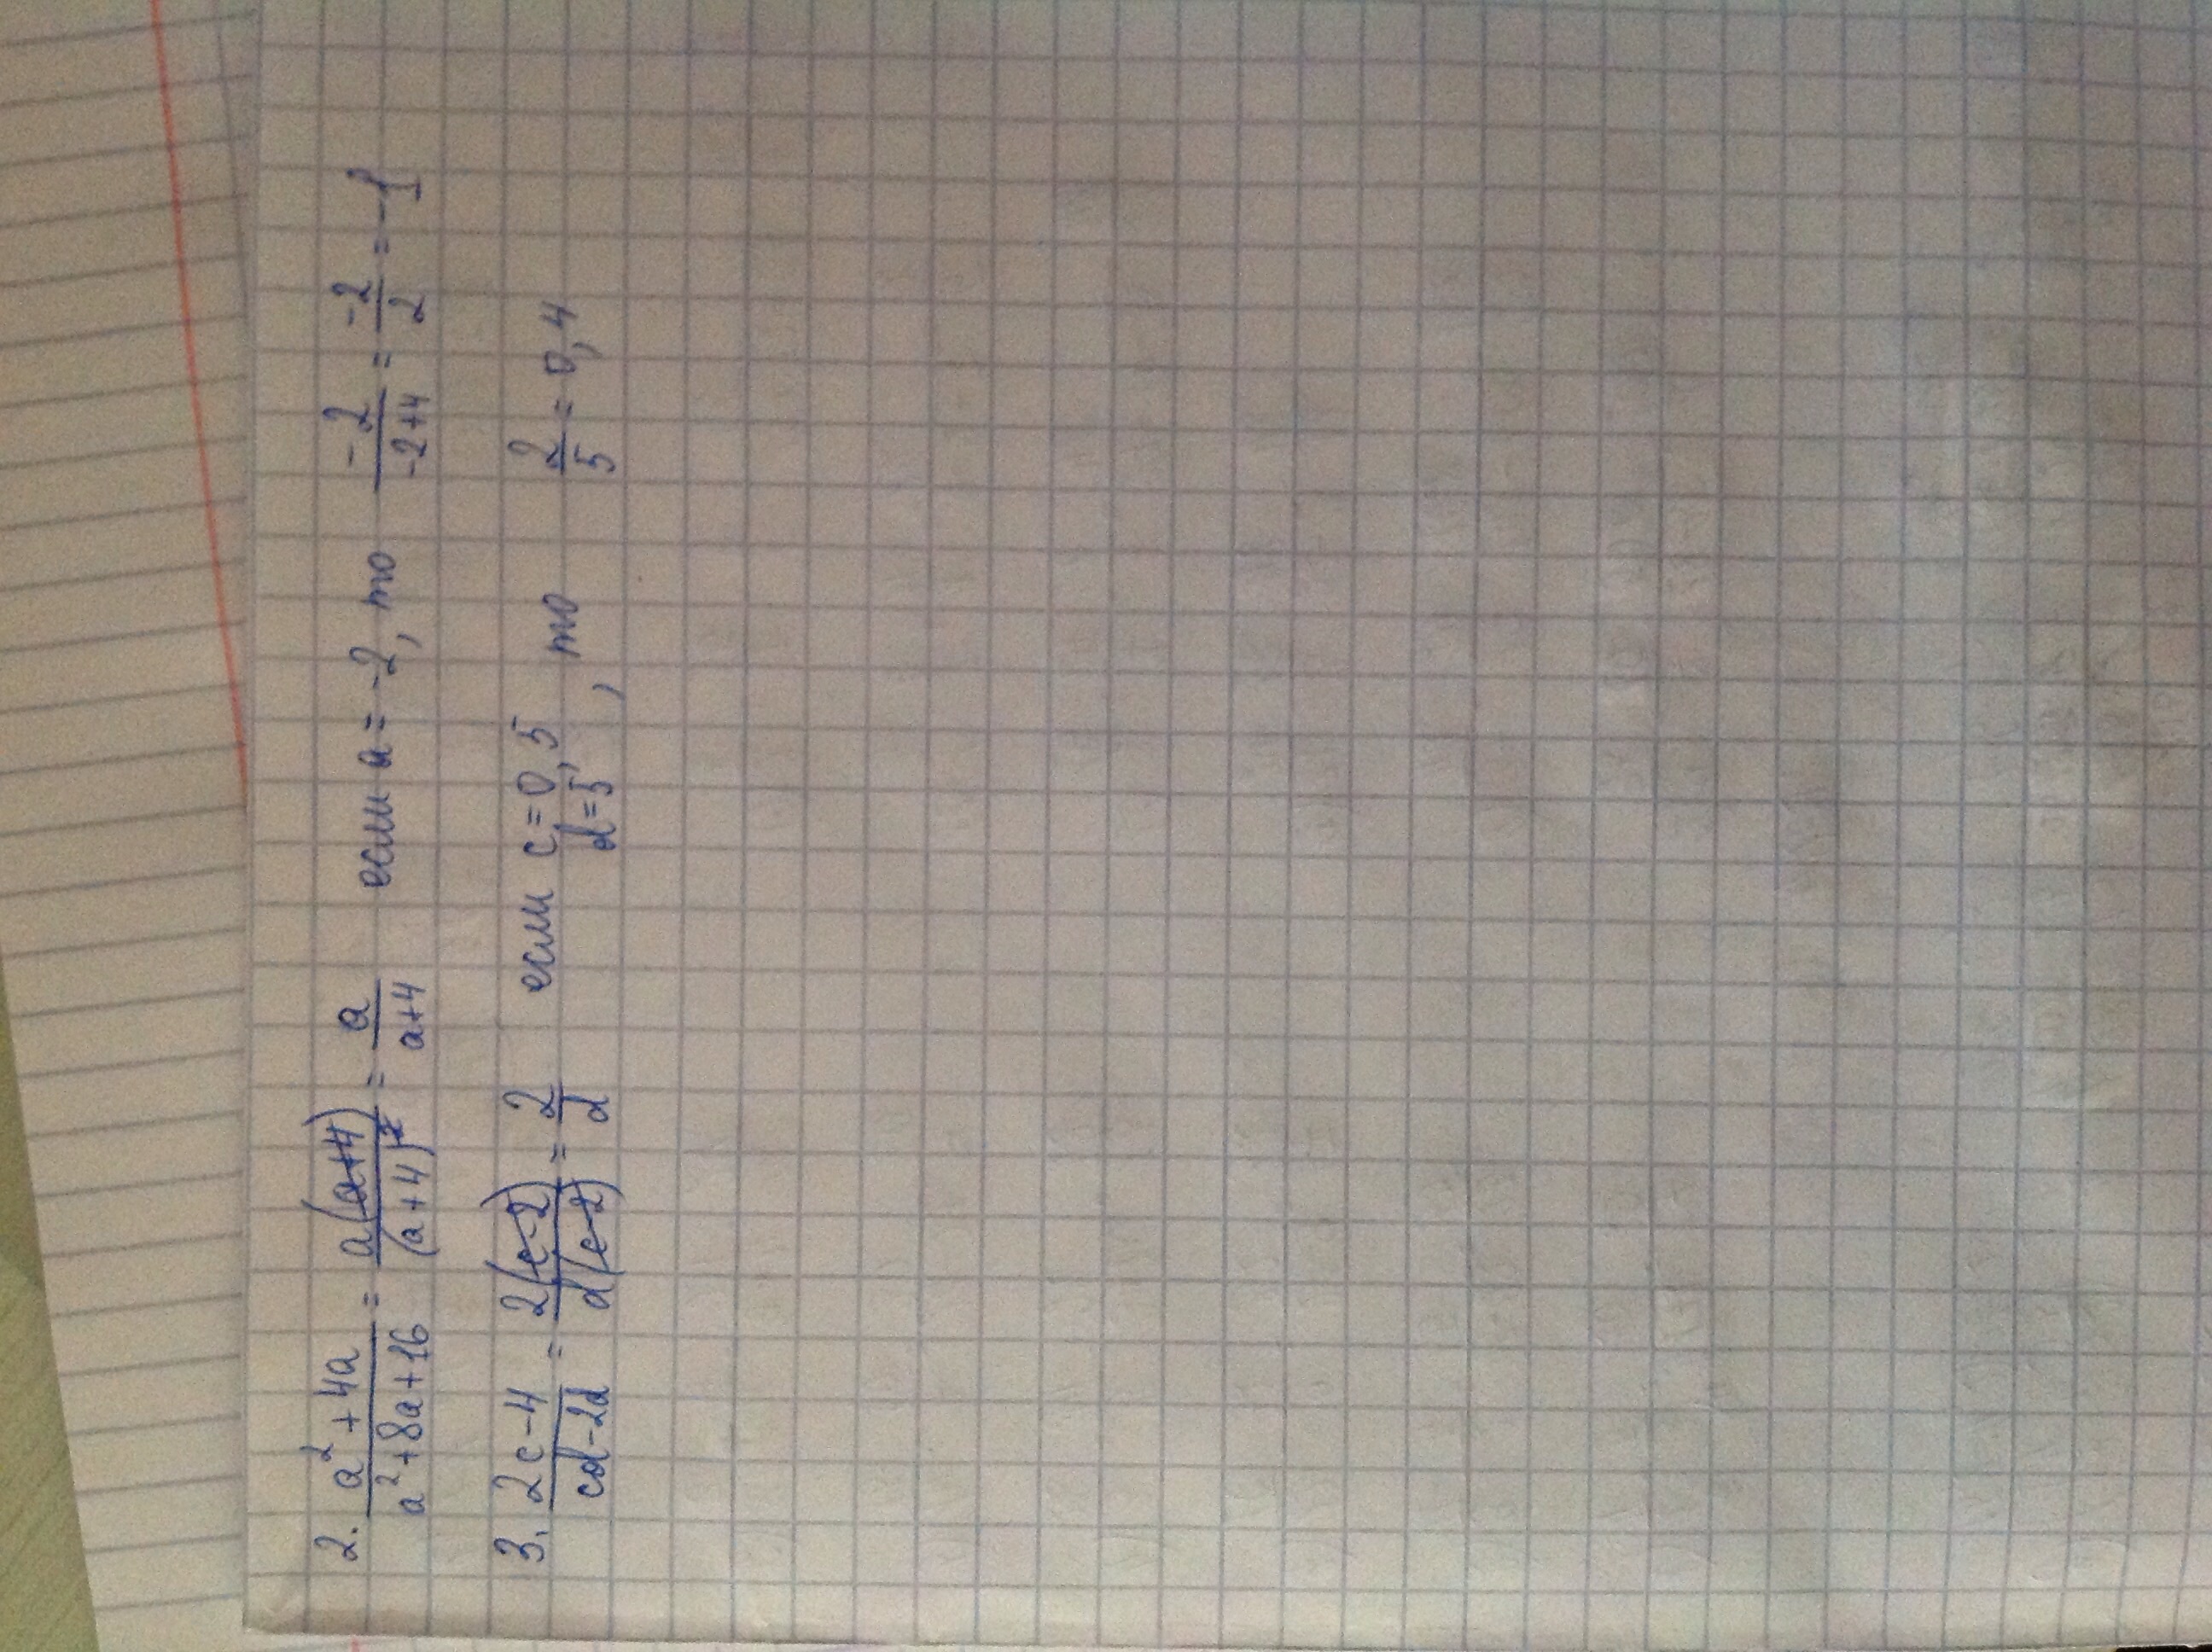 2. (a² + 4a)/(a² + 8a + 16) = a(a+4)/(a+4)² = a/(a+4) если a = -2, то -2/(-2+4) = -2/2 = -1
3. (2c - 4)/(cd - 2d) = 2(c-2)/d(c-2) = 2/d если c = 0,5, d = 5, то 2/5 = 0,4